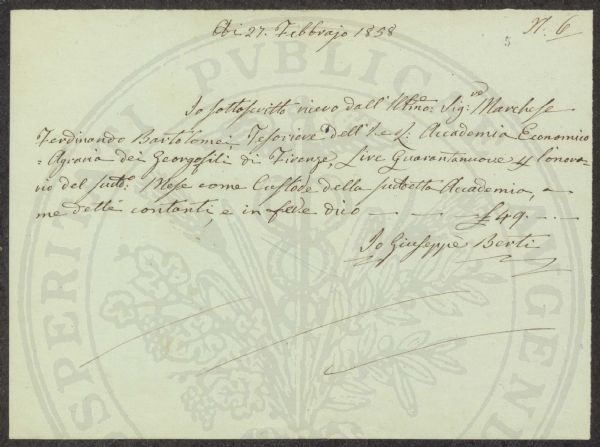 Adì 27. Febbrajo 1858
N. 6
5
Io sottoscritto ricevo dall' Illmo: Sig:re Marchese
Ferdinando Bartolomei, Tesoriere dell' I. e R. Accademia Economico
=Agraria dei Georgofili di Firenze, Lire Quarantanuove p l'onora-
rio del sudto: Mese come Custode della sudetta Accademia, a
me dette contanti, e in fede dico — — — £ 49. — —
Io Giuseppe Berti
PROSPERITATI PUBLICAE AUGENDAE